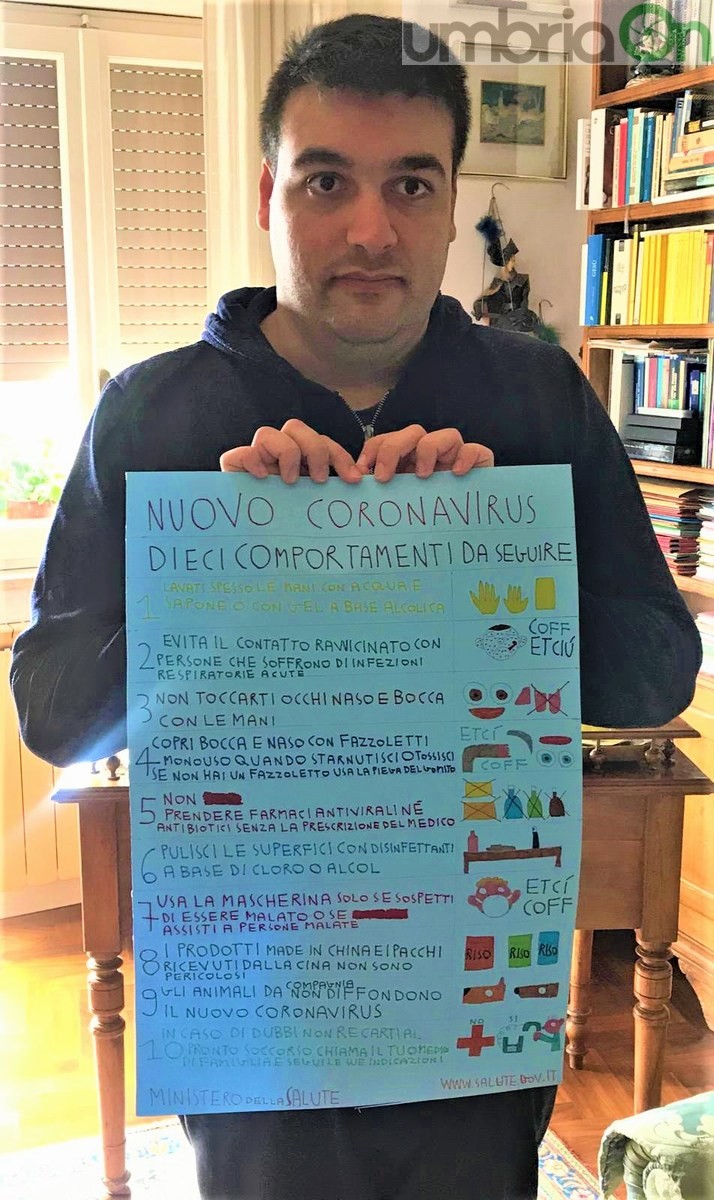 umbriaOn
NUOVO CORONAVIRUS
DIECI COMPORTAMENTI DA SEGUIRE
1 LAVATI SPESSO LE MANI CON ACQUA E
SAPONE O CON GEL A BASE ALCOLICA
COFF
ETCIÚ
2 EVITA IL CONTATTO RAVVICINATO CON
PERSONE CHE SOFFRONO DI INFEZIONI
RESPIRATORIE ACUTE
3 NON TOCCARTI OCCHI NASO E BOCCA
CON LE MANI
4 COPRI BOCCA E NASO CON FAZZOLETTI
MONOUSO QUANDO STARNUTISCI O TOSSISCI
SE NON HAI UN FAZZOLETTO USA LA PIEGA DEL GOMITO
ETCÍ
COFF
5 NON
PRENDERE FARMACI ANTIVIRALI NÉ
ANTIBIOTICI SENZA LA PRESCRIZIONE DEL MEDICO
6 PULISCI LE SUPERFICI CON DISINFETTANTI
A BASE DI CLORO O ALCOL
7 USA LA MASCHERINA SOLO SE SOSPETTI
DI ESSERE MALATO O SE
ASSISTI A PERSONE MALATE
ETCÍ
COFF
8 I PRODOTTI MADE IN CHINA E I PACCHI
RICEVUTI DALLA CINA NON SONO
PERICOLOSI
RISO RISO RISO
9 GLI ANIMALI DA COMPAGNIA NON DIFFONDONO
IL NUOVO CORONAVIRUS
10 IN CASO DI DUBBI NON RECARTI AL
PRONTO SOCCORSO CHIAMA IL TUO MEDICO
DI FAMIGLIA E SEGUI LE SUE INDICAZIONI
NO SÍ
WWW.SALUTE.GOV.IT
MINISTERO DELLA SALUTE